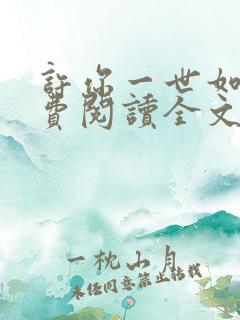 許你一世如
費閱讀全文
一枕山月
未经同意禁止转载